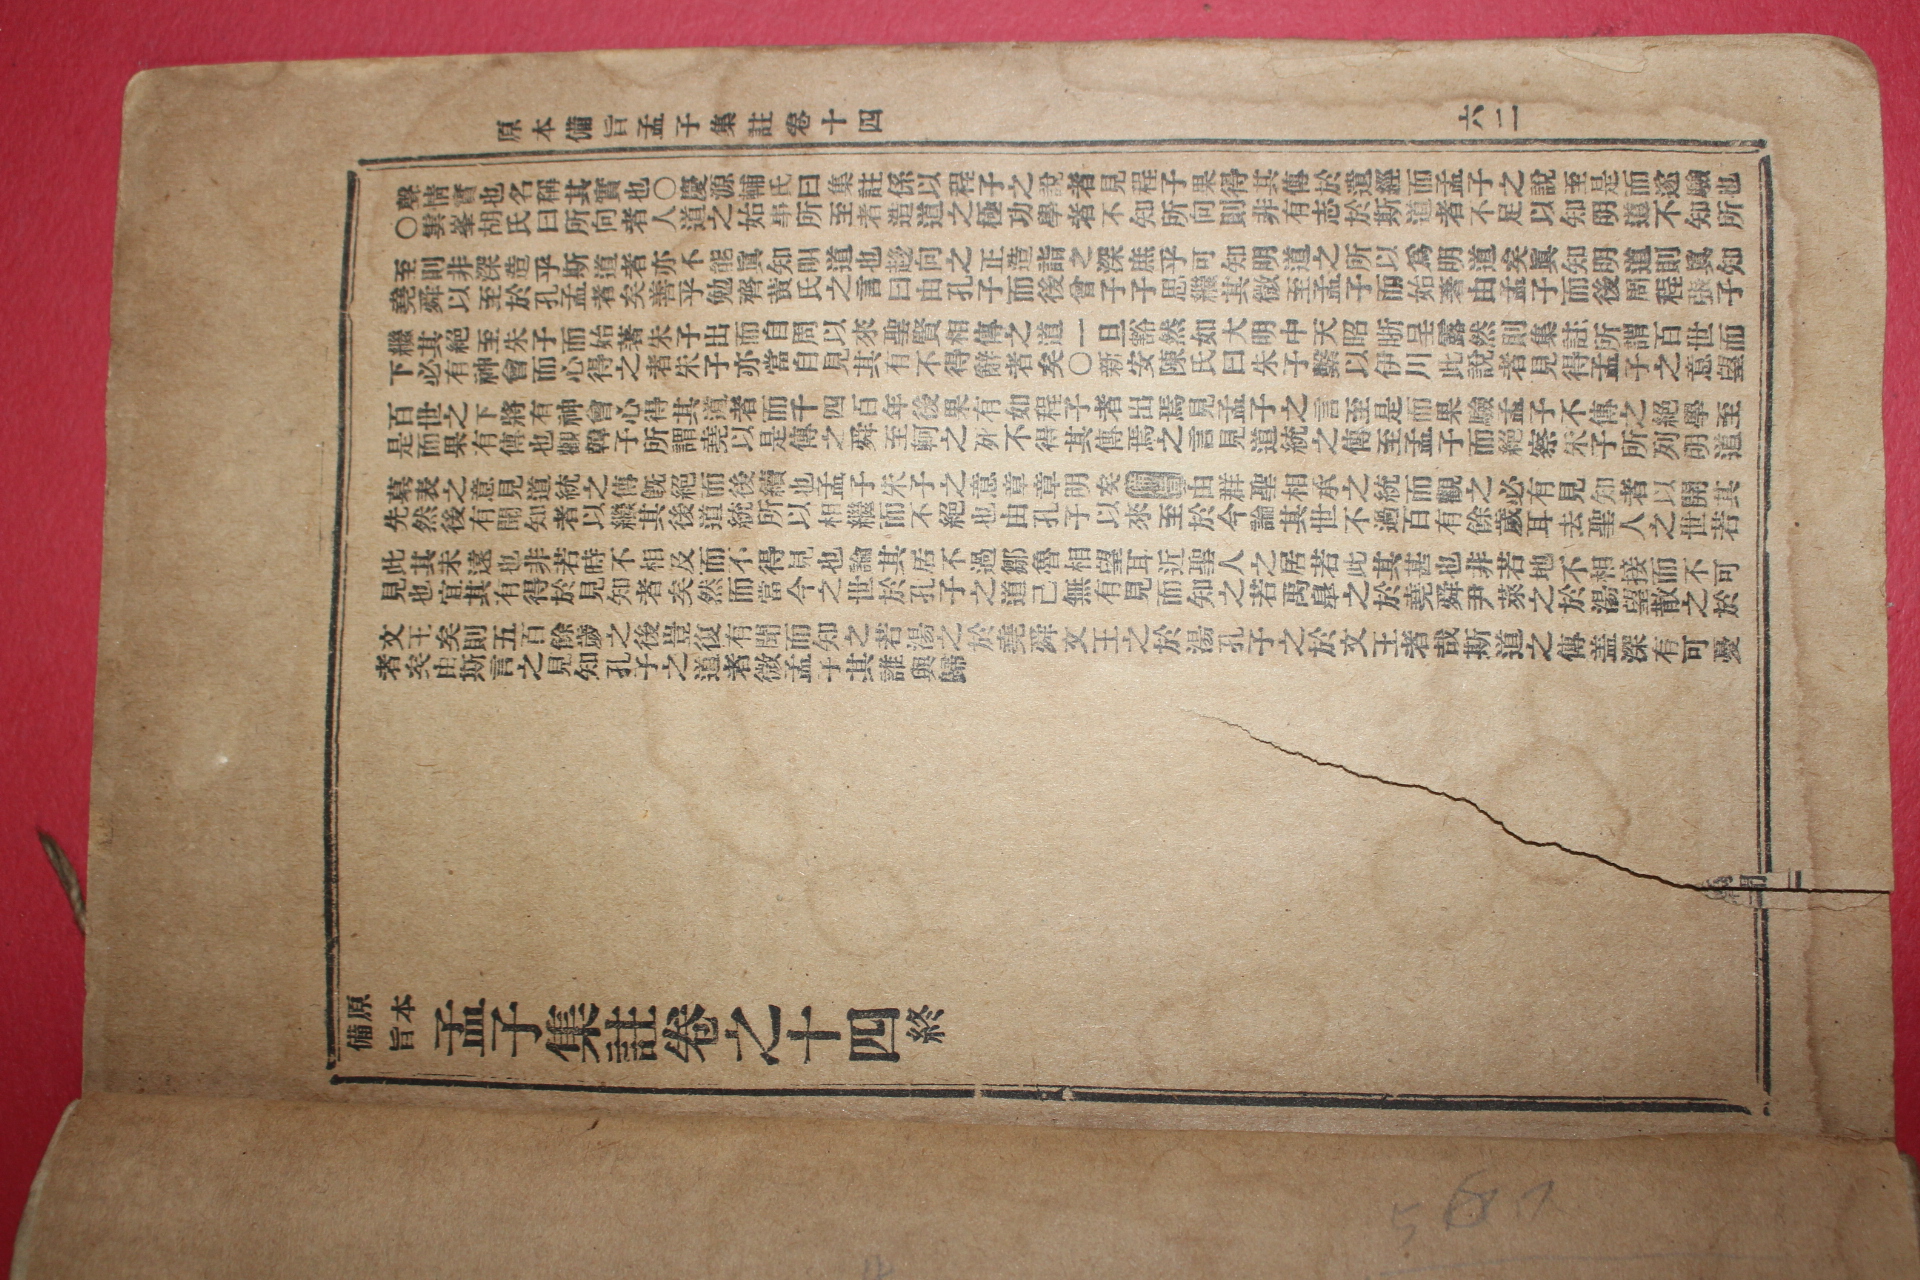 原本備旨孟子集註卷十四
六二
聲情實也名稱其實也○慶源輔氏曰集註係以程子之說者見程子果得其傳於遺經而孟子之說至是而遂驗也
○雲峯胡氏曰所向者人道之始事所至者造道之極功學者不知所向則非有志於斯道者不足以知明道不知所
至則非深造乎斯道者亦不能眞知明道也趍向之正造詣之深庶乎可知明道之所以爲明道矣眞知明道則眞知
堯舜以至於孔孟者矣善乎勉齊黃氏之言曰由孔子而後曾子子思繼其微至孟子而始著由孟子而後周程張子
繼其絶至朱子而始著朱子出而自周以來聖賢相傳之道一旦豁然如大明中天昭晣呈露然則集註所謂百世而
下必有神會而心得之者朱子亦當自見其有不得辭者矣○新安陳氏曰朱子繫以伊川此說者見得孟子之意望
百世之下將有神會心得其道者而千四百年後果有如程子者出焉見孟子之言至是而果驗孟子不傳之絕學至
是而果有傳也觀韓子所謂堯以是傳之舜至軻之死不得其傳焉之言見道統之傳至孟子而絕察朱子所列明道
墓表之意見道統之傳旣絕而後續也孟子朱子之意章章明矣備旨由群聖相承之統而觀之必有見知者以開其
先然後有聞知者以繼其後道統所以相繼而不絕也由孔子以來至於今論其世不過百有餘歲耳去聖人之世若
此其未遠也非若時不相及而不得見也論其居不過鄒魯相望耳近聖人之居若此其甚也非若地不相接而不可
見也宜其有得於見知者矣然而當今之世於孔子之道己無有見而知之若禹皐之於堯舜尹萊之於湯望散之於
文王矣則五百餘歲之後豈復有聞而知之若湯之於堯舜文王之於湯孔子之於文王者哉斯道之傳盖深有可憂
者矣由斯言之見知孔子之道者微孟子其誰與歸
原本備旨孟子集註卷之十四終